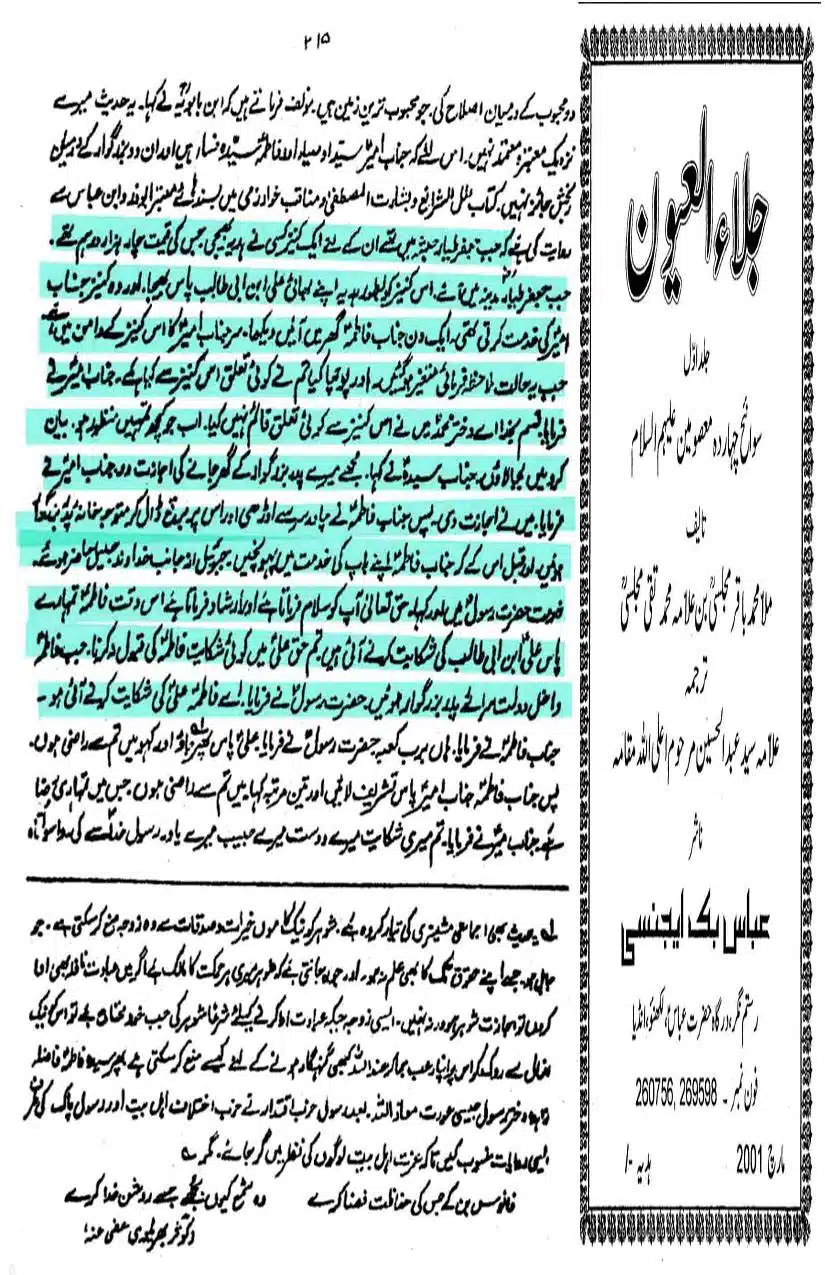 ۲۱۵
دو محبوب کے درمیان اصلاح کی۔ جو محبوب ترین زمین ہیں۔ مؤلف فرماتے ہیں کہ ابن بابویہؒ نے کہا۔ یہ حدیث میرے
نزدیک معتبر و معتمد نہیں۔ اس لئے کہ جناب امیرؑ سید اوصیاء اور فاطمہؑ سیدہ نساء ہیں اور ان دو بزرگوار کے درمیان
رنجش جائز نہیں۔ کتاب علل الشرائع و بشارت المصطفیٰ و مناقب خوارزمی میں بسند ہائے معتبر ابوذر و ابن عباس سے
روایت کی ہے کہ جب جعفر طیار حبشہ میں تھے ان کے لئے ایک کنیز کسی نے ہدیہ بھیجی جس کی قیمت چار ہزار درہم تھے۔
جب جعفر طیارؑ مدینہ میں آئے۔ اس کنیز کو بطور ہدیہ اپنے بھائی علی ابن ابی طالب پاس بھیجا۔ اور وہ کنیز جناب
امیرؑ کی خدمت کرتی تھی۔ ایک دن جناب فاطمہؑ گھر میں آئیں دیکھا۔ سر جناب امیرؑ کا اس کنیز کے دامن میں ہے
جب یہ حالت ملاحظہ فرمائی متغیر ہوگئیں۔ اور پوچھا کیا تم نے کوئی تعلق اس کنیز سے کیا ہے۔ جناب امیرؑ نے
فرمایا۔ قسم بخدا اے دختر محمدؐ میں نے اس کنیز سے کوئی تعلق قائم نہیں کیا۔ اب جو کچھ تمہیں منظور ہو۔ بیان
کرو میں بجا لاؤں۔ جناب سیدہؑ نے کہا۔ مجھے میرے پدر بزرگوار کے گھر جانے کی اجازت دو۔ جناب امیرؑ نے
فرمایا۔ میں نے اجازت دی۔ پس جناب فاطمہؑ نے چادر سر سے اوڑھی اور اس پر برقع ڈال کر متوجہ خانہ پدر بزرگوار
ہوئیں۔ اور قبل اس کے کہ جناب فاطمہؑ اپنے باپ کی خدمت میں پہونچیں۔ جبرئیل از جانب خداوند جلیل حاضر ہوئے۔
خدمت حضرت رسولؐ میں اور کہا۔ حق تعالیٰ آپ کو سلام فرماتا ہے اور ارشاد فرماتا ہے اس وقت فاطمہؑ تمہارے
پاس علیؑ ابن ابی طالب کی شکایت کرنے آئی ہیں۔ تم حق علیؑ میں کوئی شکایت فاطمہؑ کی قبول نہ کرنا۔ جب فاطمہؑ
داخل دولت سرائے پدر بزرگوار ہوئیں۔ حضرت رسولؐ نے فرمایا۔ اے فاطمہؑ علیؑ کی شکایت کرنے آئی ہو۔
جناب فاطمہؑ نے فرمایا۔ ہاں برب کعبہ حضرت رسولؐ نے فرمایا۔ علیؑ پاس پھر جاؤ اور کہو میں تم سے راضی ہوں۔
پس جناب فاطمہؑ جناب امیرؑ پاس تشریف لائیں اور تین مرتبہ کہا میں تم سے راضی ہوں جس میں تمہاری رضا
ہے۔ جناب امیرؑ نے فرمایا۔ تم میری شکایت میرے دوست میرے حبیب میرے یاور رسول خداؐ سے کی
لہ یہ حدیث بھی اجماعی مشینری کی تیار کردہ ہے۔ شوہر کو نیک کاموں خیرات و صدقات سے وہ زوجہ منع کرسکتی ہے۔ جو
جاہل ہو جسے اپنے حقوق تک کا بھی علم نہ ہو۔ اور جو یہ جانتی ہے کہ شوہر میری ہر حرکت کا مالک ہے اگر میں عبادت نافلہ بھی ادا
کروں تو اجازت شوہر ورنہ نہیں۔ ایسی زوجہ جبکہ عبادت ادا کرنے کیلئے شرعاً شوہر کی جب خود محتاج ہے تو اس کو نیک
افعال سے روک کر اس پر اپنا رعب جما کر عنداللہ کبھی گنہگار ہونے کے لئے کیسے منع کرسکتی ہے پھر سیدہ فاطمہؑ فاضلہ
زاہدہ دختر رسول جیسی عورت معاذ اللہ۔ بعد رسول حزب اقتدار نے حزب اختلاف اہل بیت اور رسول پاک کی طرف
ایسی روایات منسوب کیں تاکہ عزت اہل بیت لوگوں کی نظر میں گر جائے۔ مگر ے
فانوس بن کے جس کی حفاظت خدا کرے وہ شمع کیوں بجھے جسے روشن خدا کرے
عفی عنہ
جلاء العیون
جلد اوّل
سوانح چہاردہ معصومین علیہم السلام
تالیف
ملا محمد باقر مجلسیؒ بن علامہ محمد تقی مجلسیؒ
ترجمہ
علامہ سید عبدالحسین مرحوم اعلی اللہ مقامہ
ناشر
عباس بک ایجنسی
رستم نگر، درگاہ حضرت عباسؑ، لکھنؤ، انڈیا
فون نمبر ۔ 269598 ,260756
مارچ 2001 ہدیہ -/